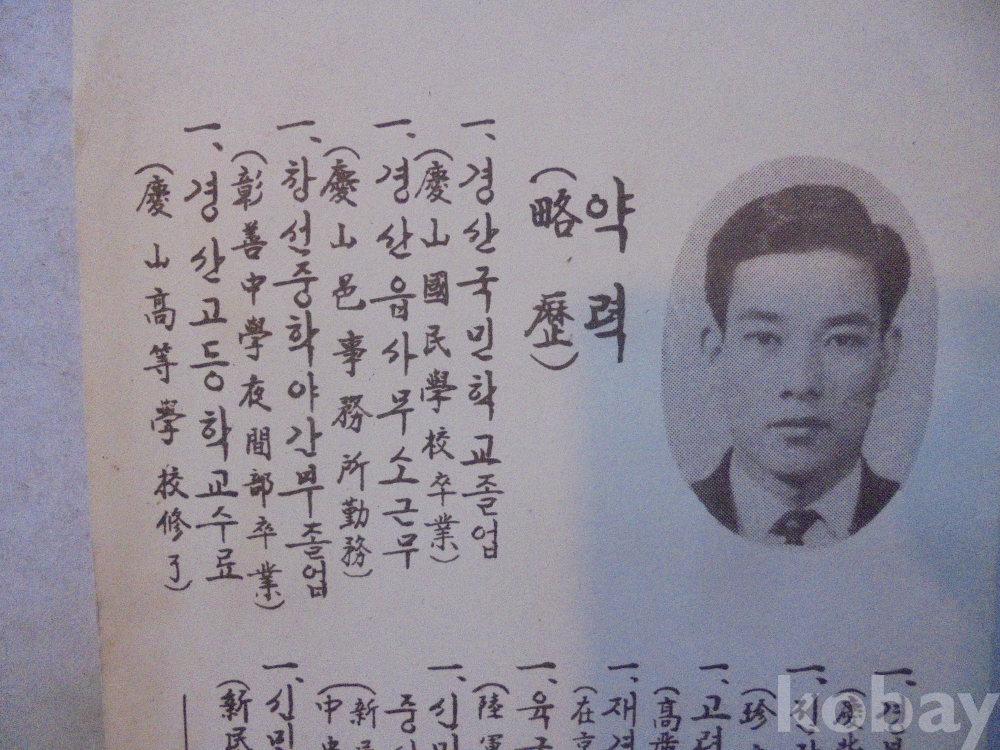 약력
(略歷)
一、경산국민학교졸업
(慶山國民學校卒業)
一、경산읍사무소근무
(慶山邑事務所勤務)
一、창선중학야간부졸업
(彰善中學夜間部卒業)
一、경산고등학교수료
(慶山高等學校修了)
一、
一、
(珍
一、고려
(高麗
一、재경
(在京
一、육군
(陸軍
一、신민
중
(新民
中央
一、신민
(新民
kobay